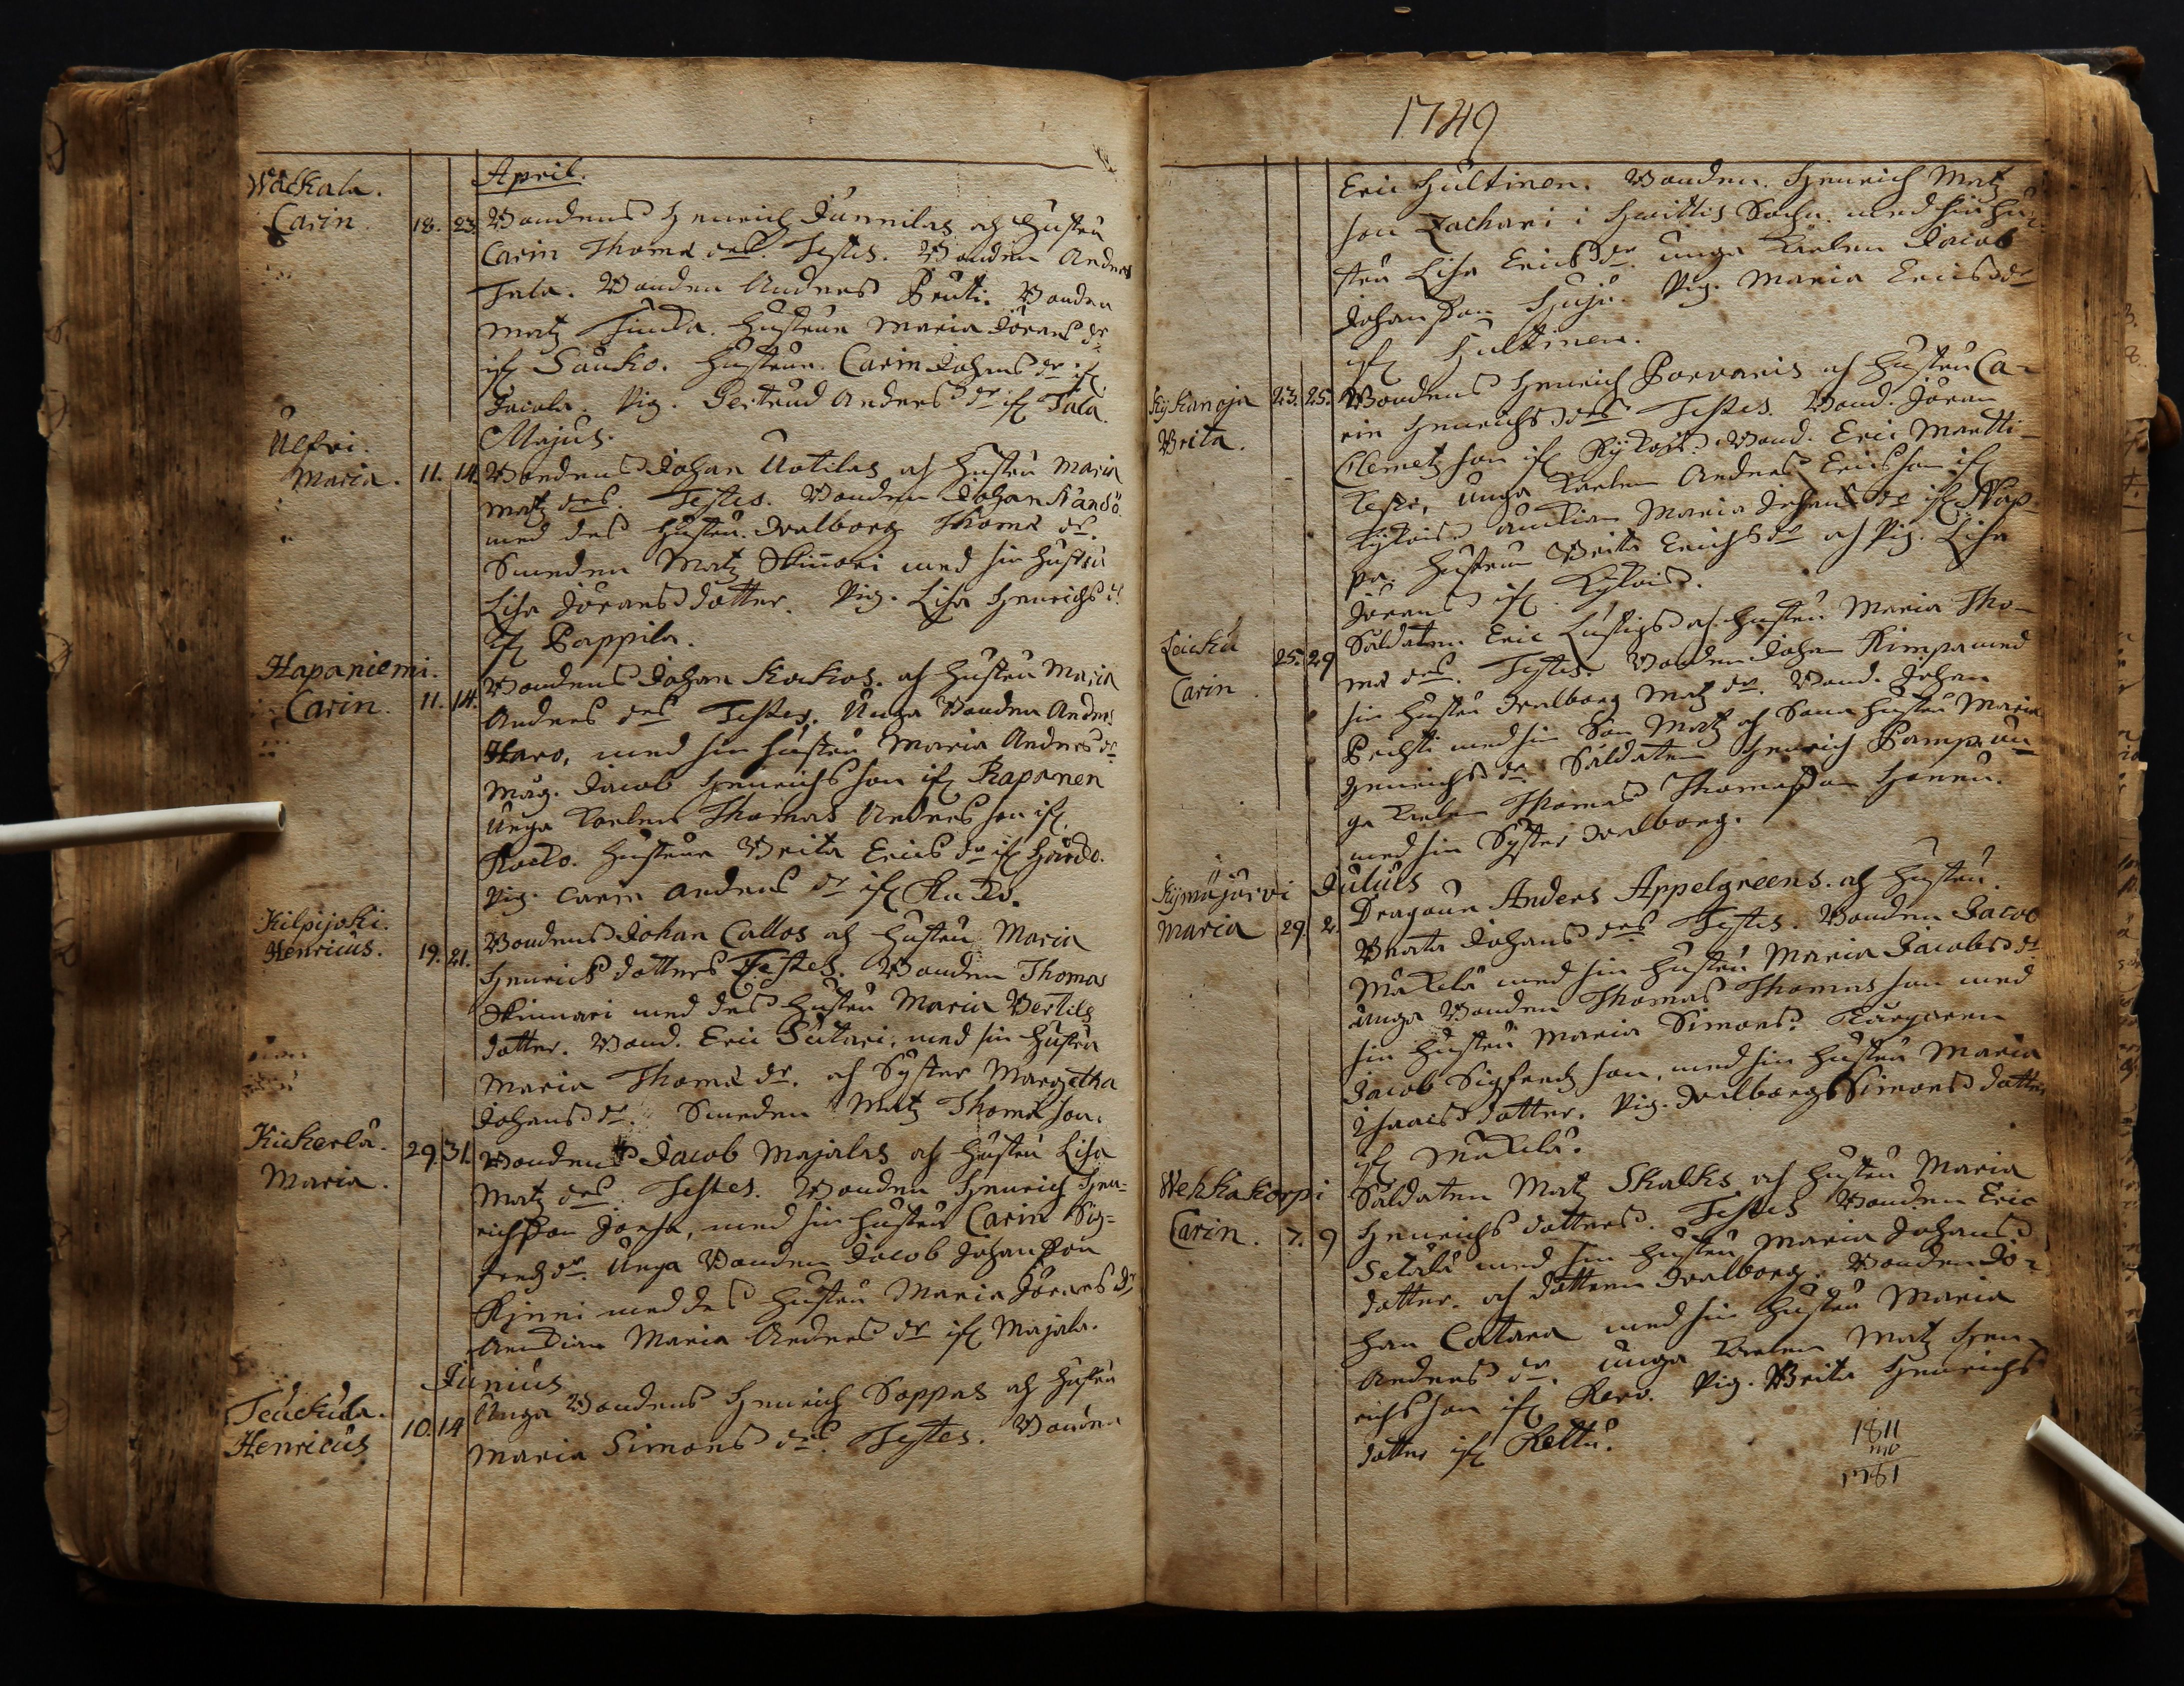 April.
Wačkala.
Carin. 18. 23. Bondens Henrich Junnilas och hustru
Carin Thomæ drs. Testes. Bonden Anders
Tala. Bonden Anders Pruti. Bonden
Matz hustrun Maria Jörans dr
if. Sauko. Hustrun Carin Johans dr if.
Jacola. Pig. Gertrud Anders dr if. Tala.
Majus.
Ulfvi.
Maria. 11. 14. Bondens Johan Uotilas och hustru Maria
Matz drs. Testes. Bonden Johan
med des hustru Walborg Thomæ dr.
Smeden Matz Skinnari med sin hustru
Lisa Jörans dotter. Pig. Lisa Henrichs d.
if. Pappila.
Hapaniemi.
Carin. 11. 14. Bondens Johan Kockos. och hustru Maria
Anders drs Testes. Unga Bonden Anders
Haro, med sin hustru Maria Anders dr
Måg. Jacob Henrichs son if. Rapanen
Unga Karlen Thomas Anders son if.
hustrun Brita Erics dr if.
Pig. Carin Anders dr if.
Kilpijoki.
Henricus. 19. 21. Bondens Johan Callos och hustru Maria
Henrics dotters Testes. Bonden Thomas
Skinnari med des hustru Maria Bertils
dotter. Bond. Eric Sutari, med sin hustru
Maria Thomæ dr. och Syster Margetha
Johans dr. Smeden Matz Thomæ son.
Kickerlä.
Maria. 29. 31. Bondens Jacob Majalas och hustru Lisa
Matz drs. Testes. Bonden Henrich Hen=
richsson med sin hustru Carin Sig=
freds dr. Unga Bonden Jacob Johansson
Rinni med des hustru Maria Jörans dr
Maria Anders dr if. Majala.
Junius
Teuckula.
Henricus 10. 14 Unga Bondens Henrich Soppas och hustru
Maria Simons drs. Testes. Bonden
1749
Eric Hultinen. Bonden Henrich Matz
son Zachari i Huittis Sochn. med sin hu=
stru Lisa Erics dr. unga Karlen Jacob
Johansson Pig. Maria Erics dr
if. Hultinen.
Kykänoja
Brita. 23. 25. Bondens Henrich Porvaris och hustru Ca=
rin Henrichs drs Testes. Bond. Jöran
Clemetz son if. Bond. Eric Martti=
unga Karlen Anders Erics son if.
Maria Johans dr if. Pap=
pa. Hustrun Brita Erichs dr och Pig. Lisa
Jörans if.
Leicku
Carin. 25. 29 Soldaten Eric Lustigs och hustru Maria Tho=
mæ drs. Testes. Bonden Johan Kimpa med
sin hustru Walborg Matz dr. Bond. Johan
med sin Son Matz och Sona hustru Maria
Henrichs dr. Soldaten Henrich Pamp. un=
ga Karlen Thomas Thomasson
med sin Syster Walborg.
Julius
Kymäjärvi
Maria 29. 2. Dragoun Anders Appelgreens. och hustru
Beata Johans drs Testes. Bonden Jacob
Mäkilä med sin hustru Maria Jacobs dr
unga Bonden Thomas Thomas son med
sin hustru Maria Simons.
Jacob Sigfreds son, med sin hustru Maria
Isaacs dotter. Pig. Walborg Simons dotter
if. Mäkilä.
Wehkakorpi
Carin. 7. 9 Soldaten Matz Skalks och hustru Maria
Henrichs dotters. Testes Bonden Eric
Setälä med sin hustru Maria Johans
dotter. och dottren Walborg. Bonden Jo=
han Catara med sin hustru Maria
Anders dr. unga Karlen Matz Hen=
richs son if. Pig. Brita Henrichs
dotter if. Kettu.
1811
1781